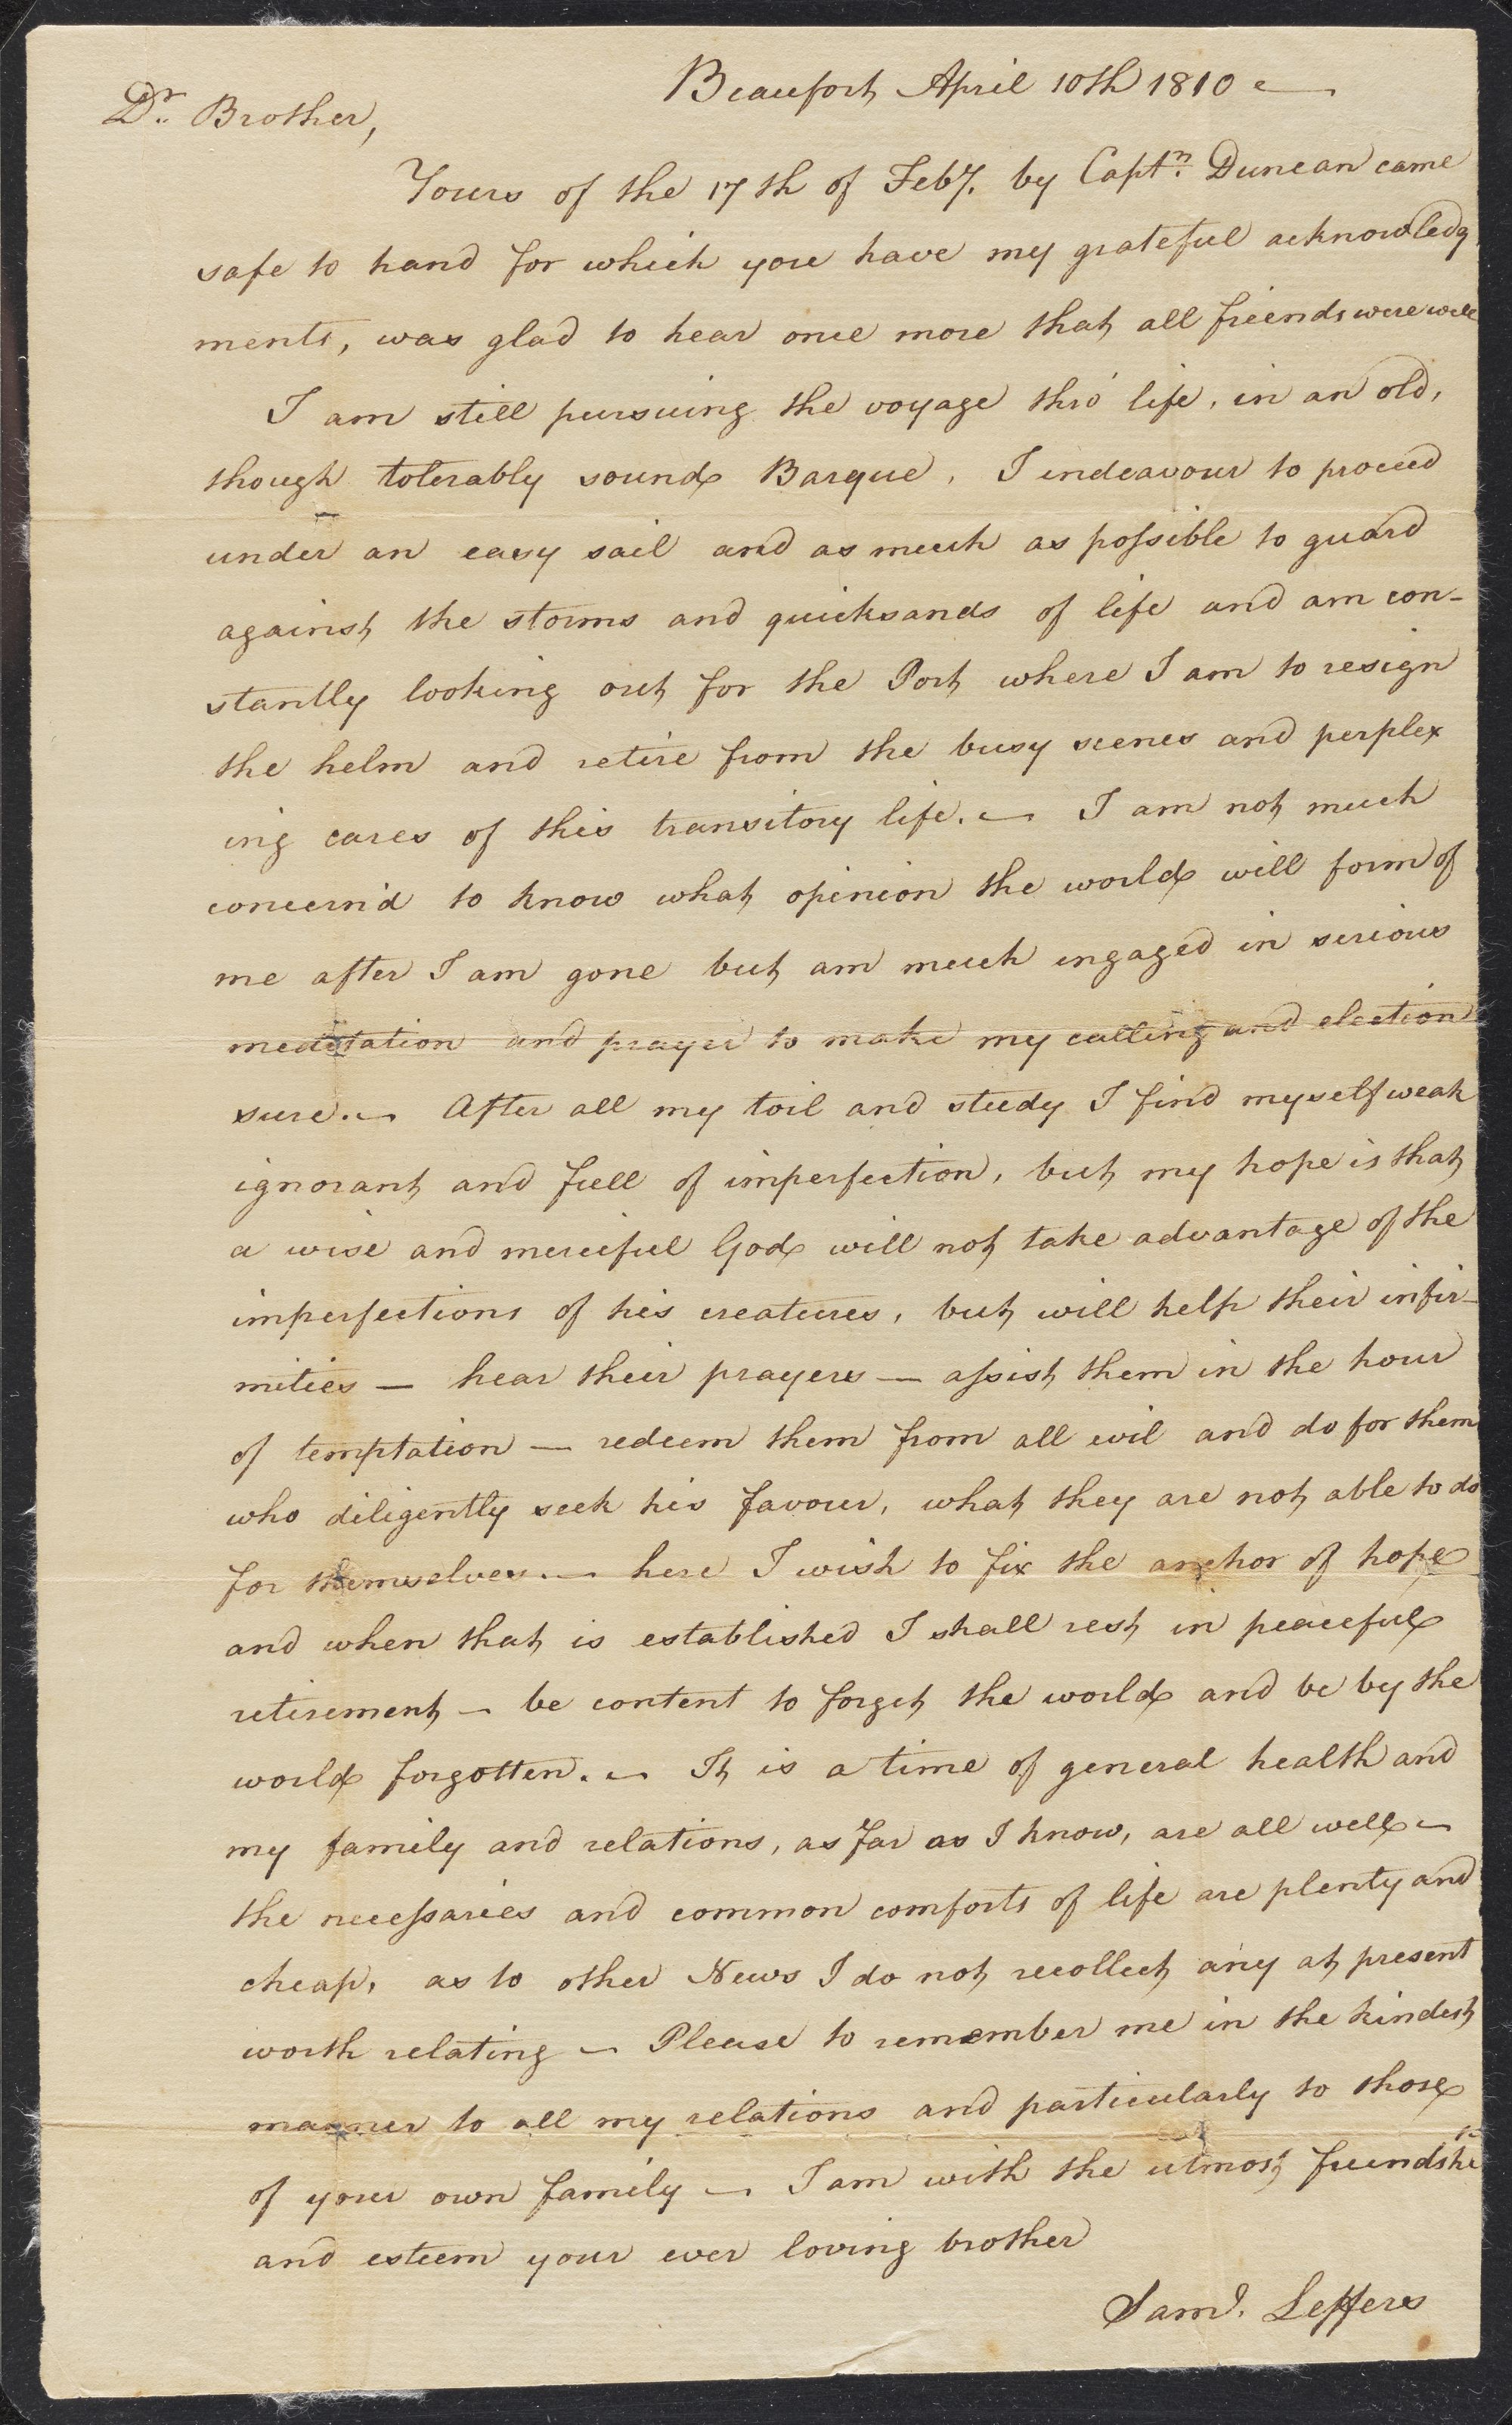 Beaufort April 10th 1810
Dr. Brother,
Yours of the 17th of Feby. by Captn. Duncan came
safe to hand for which you have my grateful acknowledg
ments, was glad to hear once more that all friends were well
I am still pursuing the voyage thro' life, in an old,
though tolerably sound Barque, I indeavour to proceed
under an easy sail and as much as possible to guard
against the storms and quicksands of life and am con-
stantly looking out for the Port where I am to resign
the helm and retire from the busy scenes and perplex
ing cares of this transitory life. — I am not much
concern'd to know what opinion the world will form of
me after I am gone but am much ingaged in serious
meditation and prayer to make my calling and election
sure. — After all my toil and study I find myself weak
ignorant and full of imperfection, but my hope is that
a wise and merciful God will not take advantage of the
imperfections of his creatures, but will help their infir-
mities — hear their prayers — assist them in the hour
of temptation — redeem them from all evil and do for them
who diligently seek his favour, what they are not able to do
for themselves. — here I wish to fix the anchor of hope
and when that is established I shall rest in peaceful
retirement — be content to forget the world and be by the
world forgotten. — It is a time of general health and
my family and relations, as far as I know, are all well —
the necessaries and common comforts of life are plenty and
cheap, as to other News I do not recollect any at present
worth relating — Please to remember me in the kindest
manner to all my relations and particularly to those
of your own family — I am with the utmost friendship
and esteem your ever loving brother
Saml. Leffers